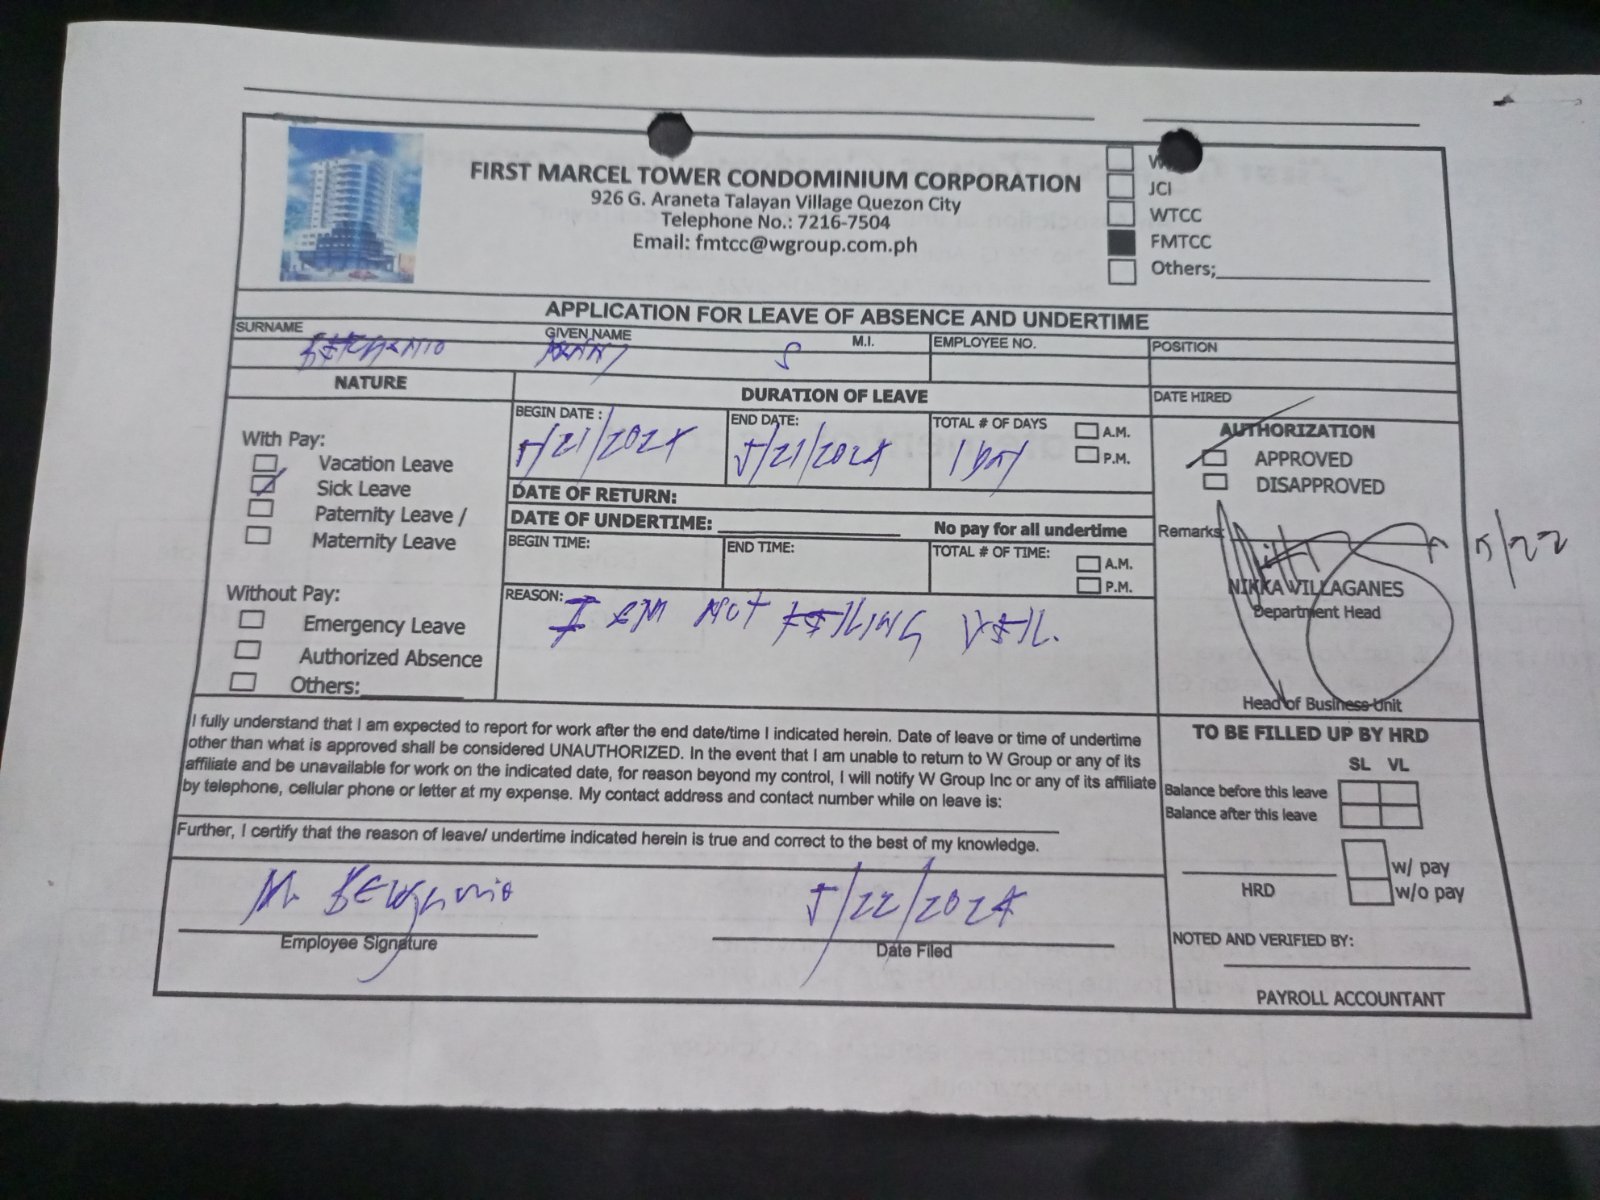 FIRST MARCEL TOWER CONDOMINIUM CORPORATION
926 G. Araneta Talayan Village Quezon City
Telephone No.: 7216-7504
Email: fmtcc@wgroup.com.ph
JCI
WTCC
FMTCC
Others;
APPLICATION FOR LEAVE OF ABSENCE AND UNDERTIME
SURNAME GIVEN NAME M.I. EMPLOYEE NO. POSITION
S
NATURE DURATION OF LEAVE DATE HIRED
BEGIN DATE : END DATE: TOTAL # OF DAYS A.M.
P.M.
5/21/2024 5/21/2024 1 DAY
With Pay:
Vacation Leave
Sick Leave
Paternity Leave /
Maternity Leave
DATE OF RETURN:
DATE OF UNDERTIME: No pay for all undertime
BEGIN TIME: END TIME: TOTAL # OF TIME: A.M.
P.M.
Without Pay:
Emergency Leave
Authorized Absence
Others:
REASON: I AM NOT FEELING WELL.
AUTHORIZATION
APPROVED
DISAPPROVED
Remarks:
5/22
NIKKA VILLAGANES
Department Head
Head of Business Unit
I fully understand that I am expected to report for work after the end date/time I indicated herein. Date of leave or time of undertime
other than what is approved shall be considered UNAUTHORIZED. In the event that I am unable to return to W Group or any of its
affiliate and be unavailable for work on the indicated date, for reason beyond my control, I will notify W Group Inc or any of its affiliate
by telephone, cellular phone or letter at my expense. My contact address and contact number while on leave is:
Further, I certify that the reason of leave/ undertime indicated herein is true and correct to the best of my knowledge.
5/22/2024
Employee Signature Date Filed
TO BE FILLED UP BY HRD
SL VL
Balance before this leave
Balance after this leave
w/ pay
HRD w/o pay
NOTED AND VERIFIED BY:
PAYROLL ACCOUNTANT